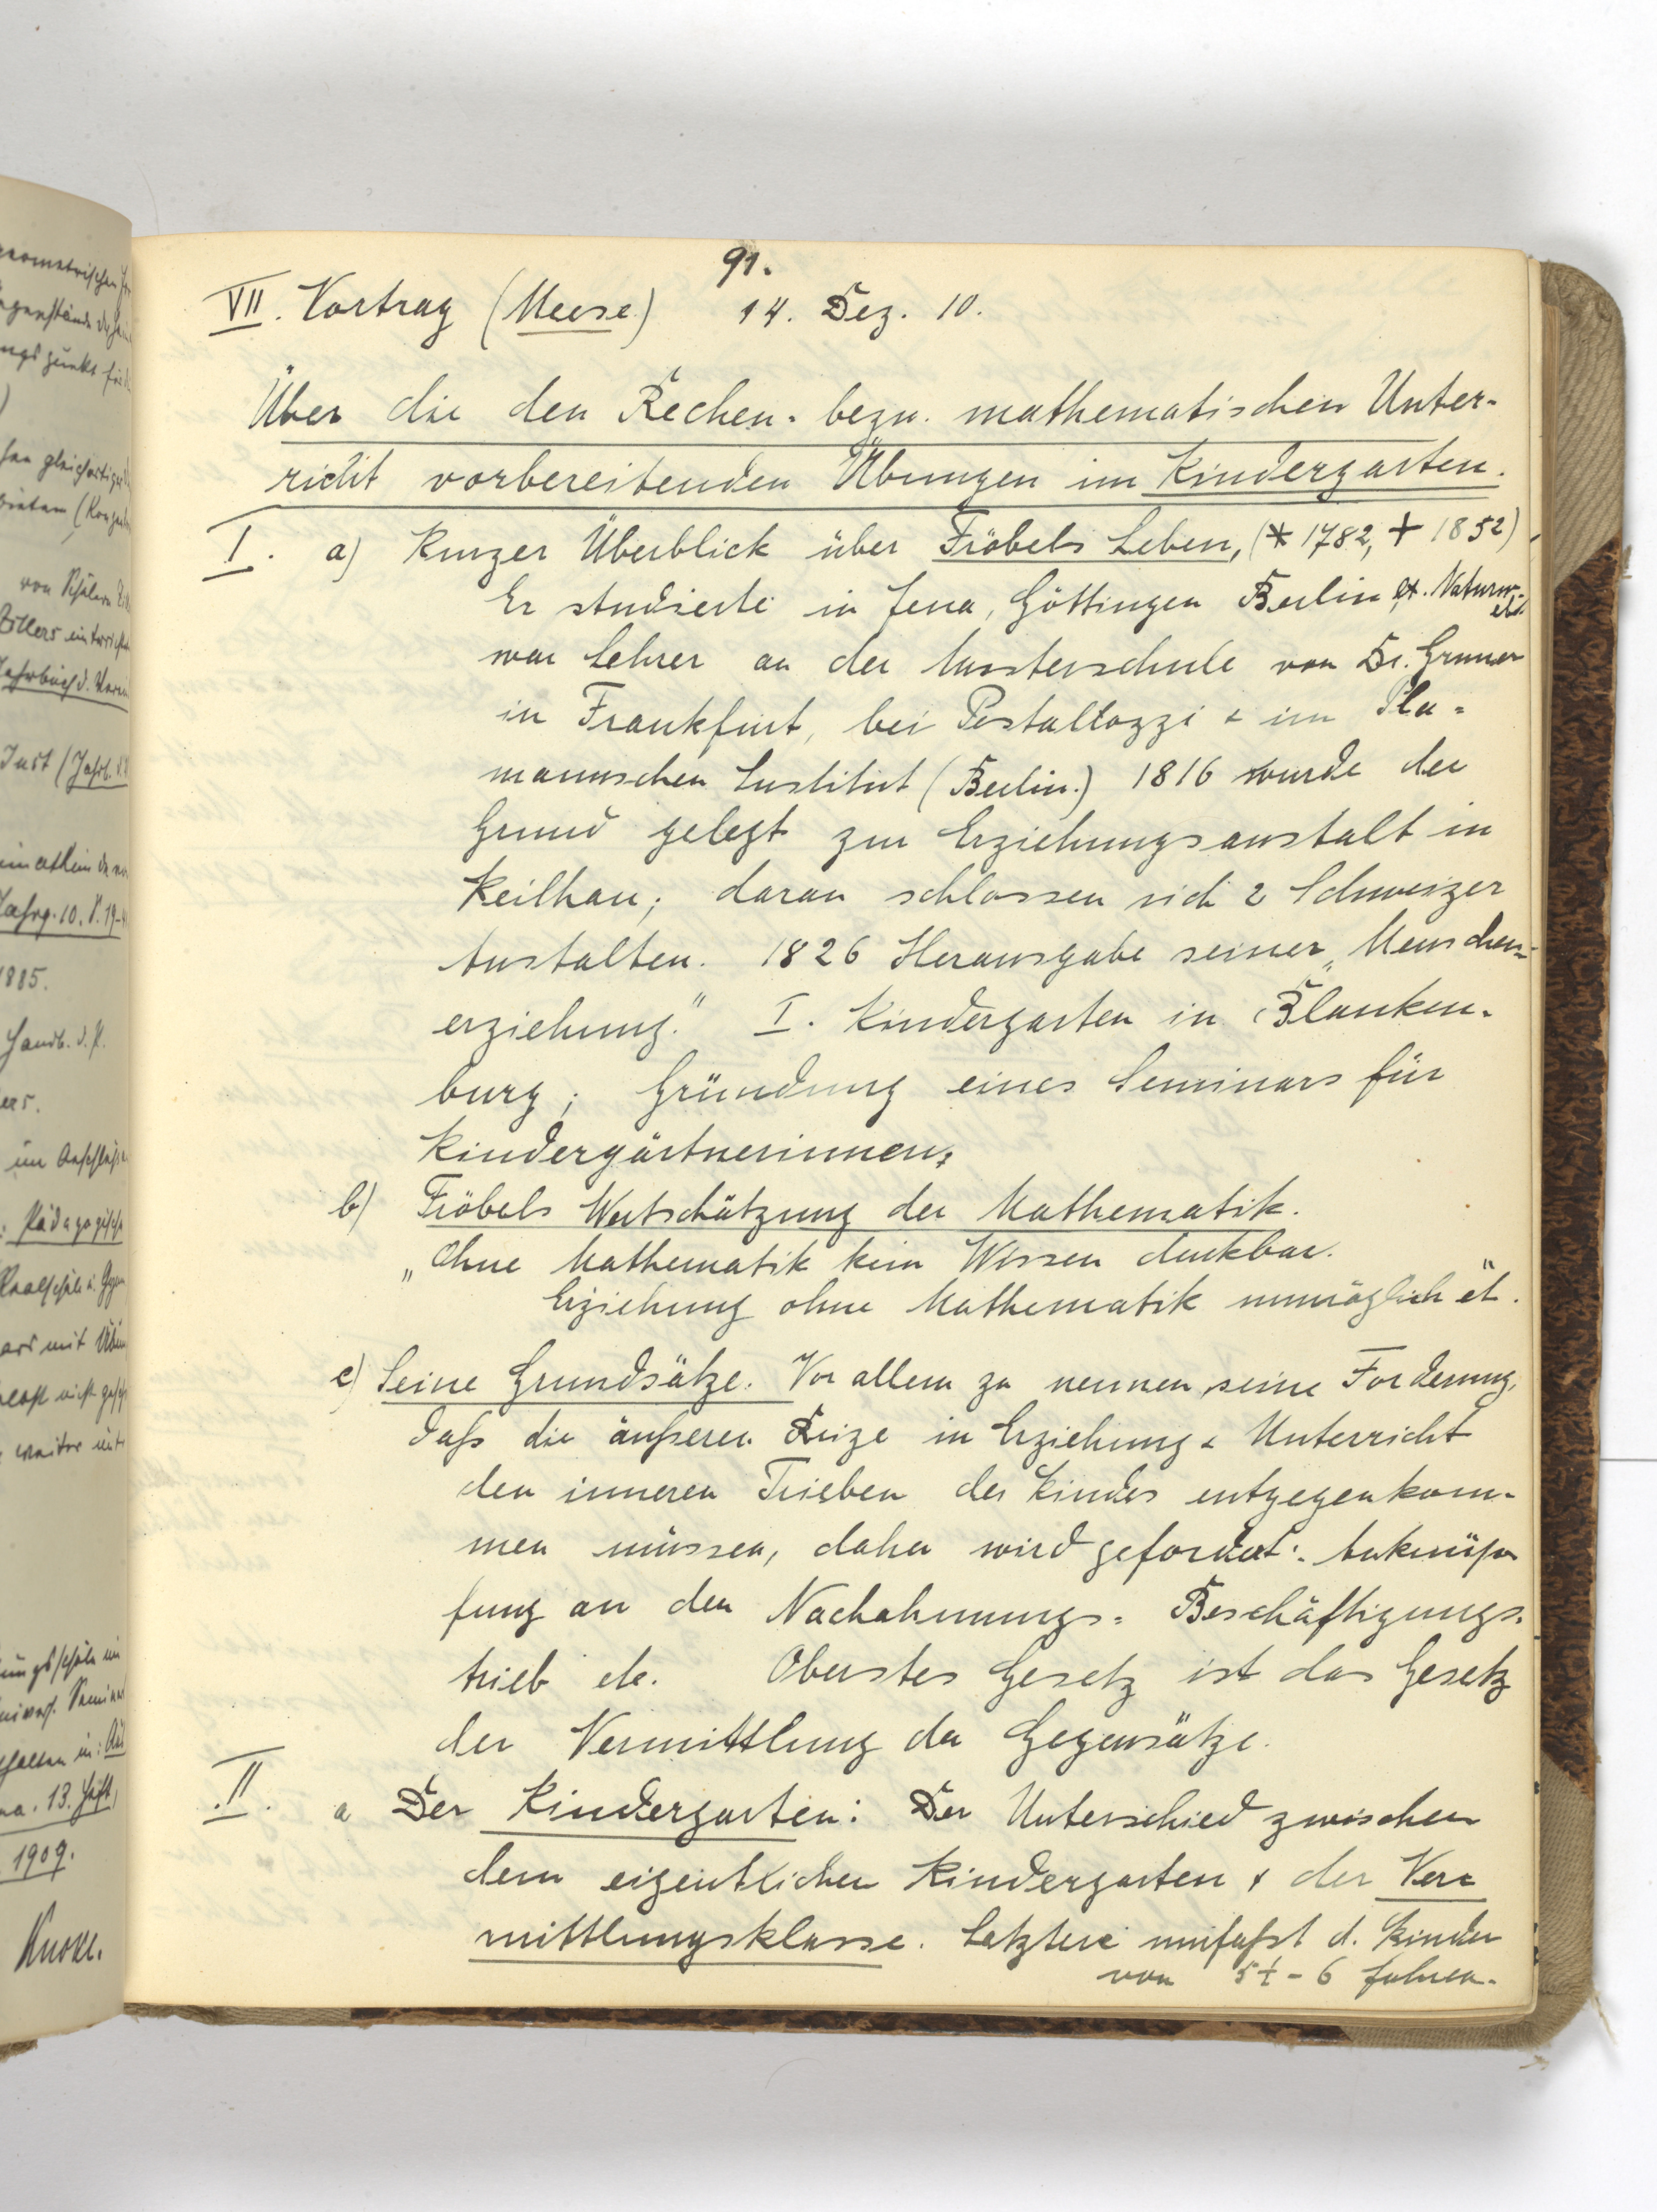 91.
VII. Vortrag (Meese.) 14. Dez. 10.
Über die den Rechen- bezw. mathematischen Unter-
richt vorbereitenden Übungen im Kindergarten.
I. a) Kurzer Überblick über Fröbels Leben, (* 1782, + 1852)
Er studierte in Jena, Göttingen Berlin Naturw.
war Lehrer an der Musterschule von Dr. Gruner
in Frankfurt, bei Pestallozzi & im Pla-
mannschen Institut (Berlin.) 1816 wurde der
Grund gelegt zur Erziehungsanstalt in
Keilhau; daran schlossen sich 2 Schweizer
Anstalten. 1826 Herausgabe seiner „Menschen-
erziehung." I. Kindergarten in Blanken-
burg; Gründung eines Seminars für
Kindergärtnerinnen;
b) Fröbels Wertschätzung der Mathematik.
„Ohne Mathematik kein Wissen denkbar.
Erziehung ohne Mathematik unmöglich etc".
c) Seine Grundsätze. Vor allem zu nennen seine Forderung,
daß die äußeren Reize in Erziehung & Unterricht
den inneren Trieben des Kindes entgegenkom-
men müssen, daher wird gefordert: Anknüp
fung an den Nachahmungs- Beschäftigungs-
trieb etc. Oberstes Gesetz ist das Gesetz
der Vermittlung der Gegensätze.
II. a Der Kindergarten: Der Unterschied zwischen
dem eigentlichen Kindergarten & der Ver-
mittlungsklasse. Letztere umfaßt d. Kinder
von 5½ - 6 Jahren.
geometrischen
von Schülern
Jahrbuch d. Verein
Just (Jahrb.
Jahrg. 10. S. 19-
1885.
Handb. d. P.
ers.
im Anschluss
: Pädagogische
mit
weiter
Seminar
halten in:
na. 13. Heft,
1909.
Knoke.